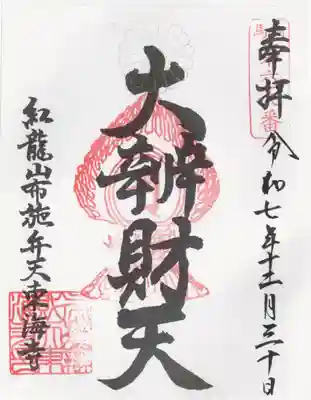 奉拝
令和七年十二月三十日
大辨財天
紅龍山布施弁天東海寺